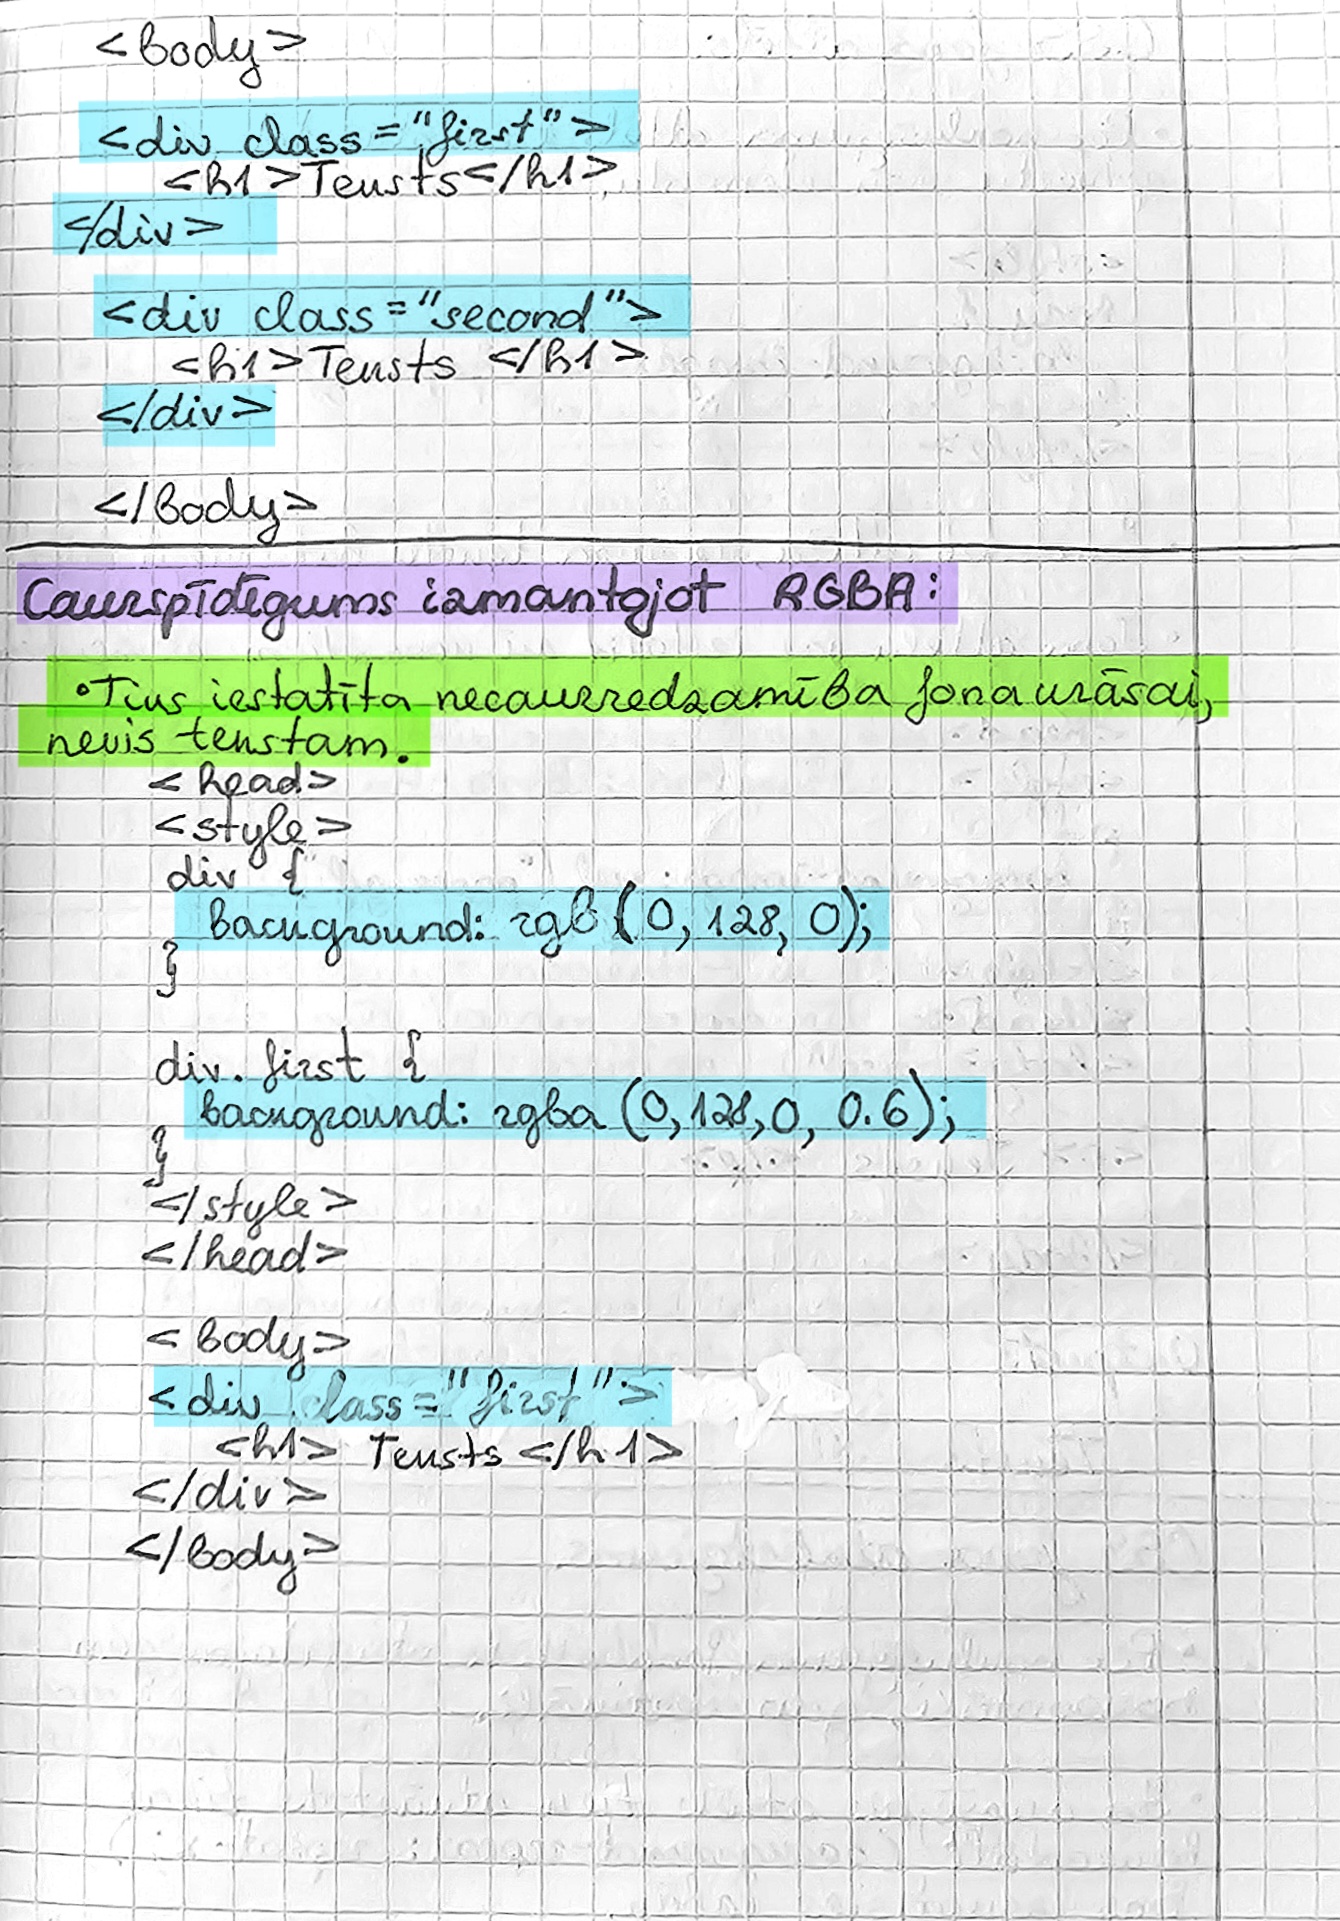 <body>
<div class="first">
<h1>Teksts</h1>
</div>
<div class="second">
<h1>Teksts </h1>
</div>
</body>
Caurspīdīgums izmantojot RGBA:
•Tiks iestatīta necaurredzamība fona krāsai,
nevis tekstam.
<head>
<style>
div {
background: rgb (0, 128, 0);
}
div. first {
background: rgba (0, 128, 0, 0.6);
}
</style>
</head>
<body>
<div class="first">
<h1> Teksts </h1>
</div>
</body>